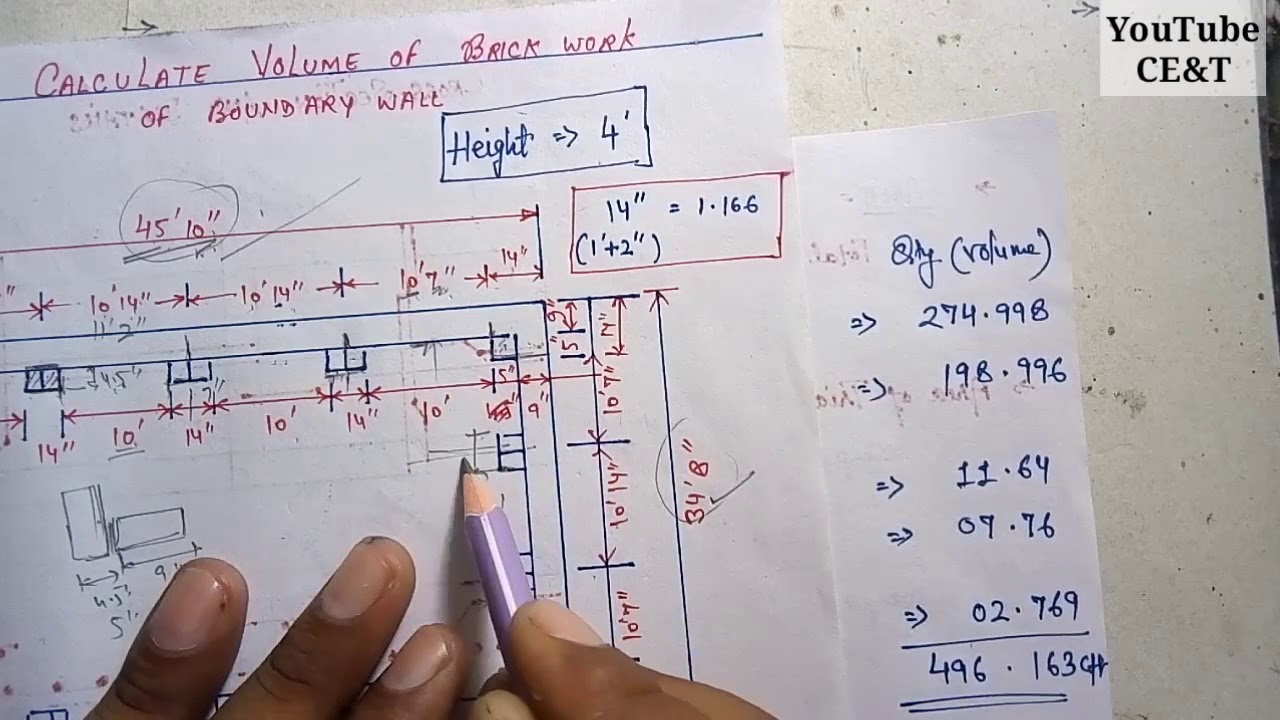 YouTube
CE&T
CALCULATE VOLUME OF BRICK WORK
OF BOUNDARY WALL
Height => 4'
45'10"
14" = 1.166
(1'+2")
10'14" 10'14" 10'7" 14"
11'2"
9" 14"
5"
4.5"
14" 10' 14" 10' 14" 10' 5" 9"
10'7"
10'14"
10'7"
34'8"
4.5"
5"
9"
Qty (volume)
=> 274.998
=> 198.996
=> 11.64
=> 07.76
=> 02.769
496.163cft